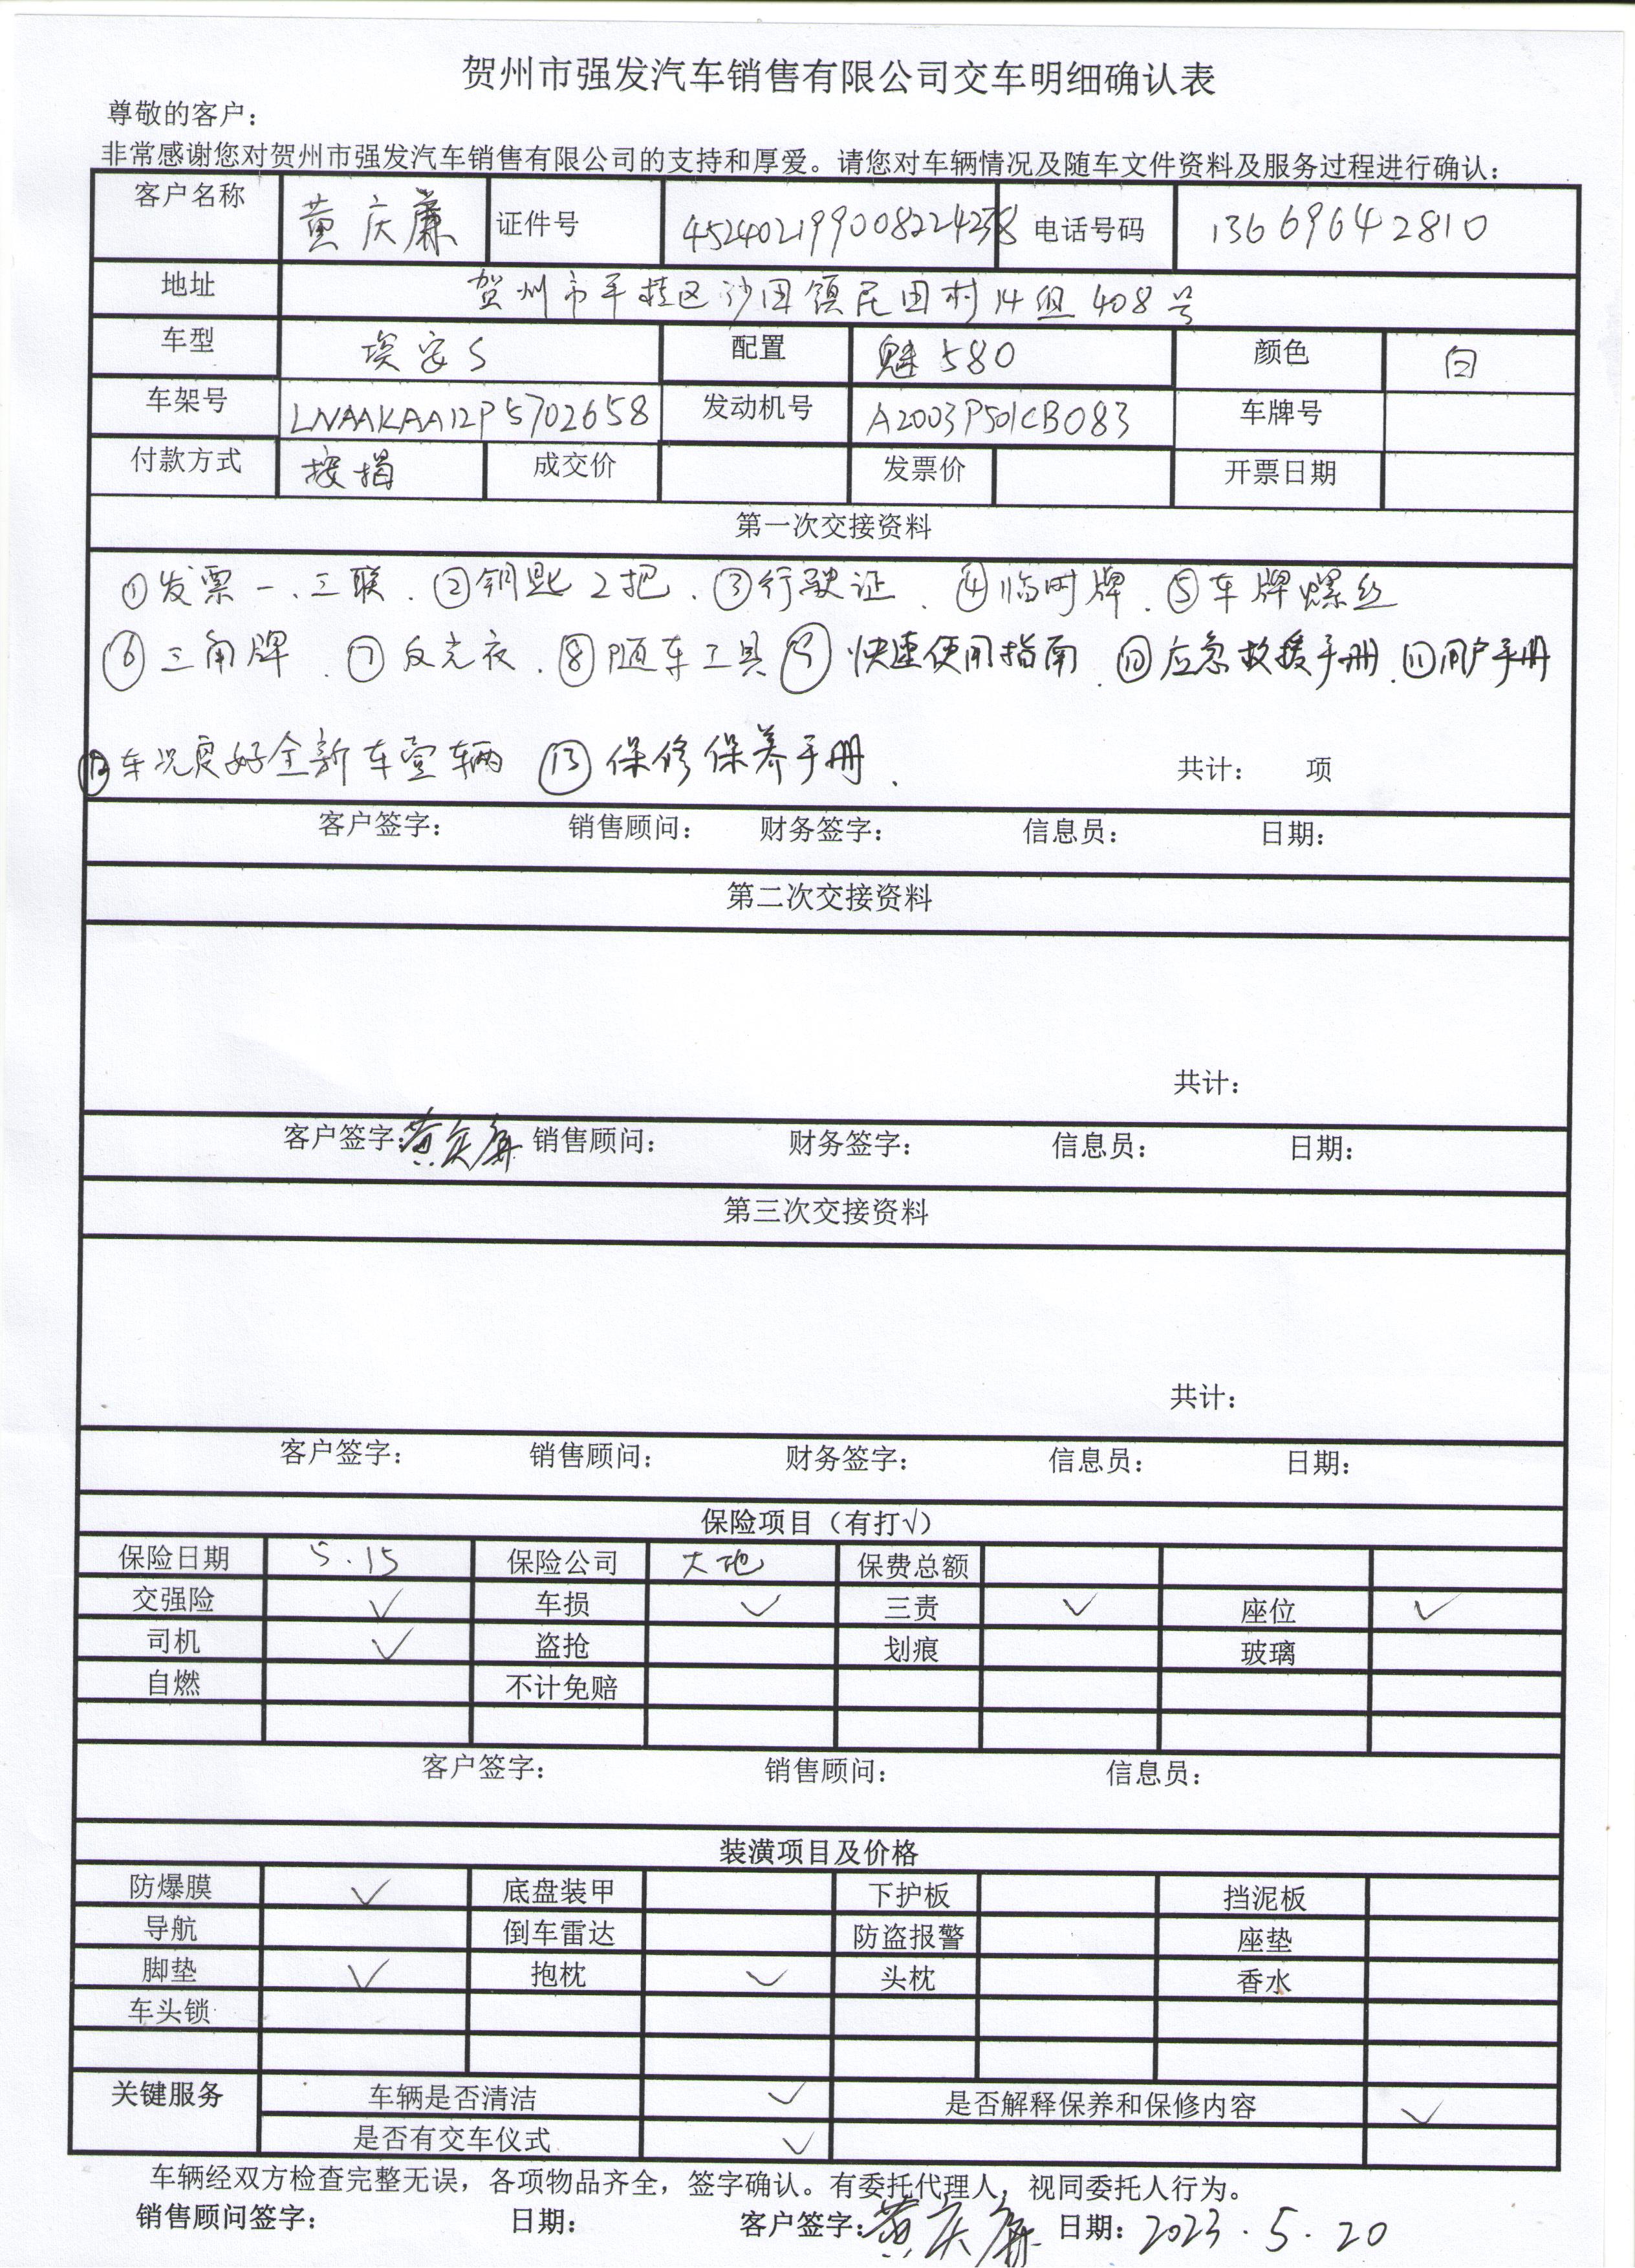 贺州市强发汽车销售有限公司交车明细确认表
尊敬的客户：
非常感谢您对贺州市强发汽车销售有限公司的支持和厚爱。请您对车辆情况及随车文件资料及服务过程进行确认：
客户名称 黄庆廉 证件号 452402199008224238 电话号码 13669642810
地址 贺州市平桂区沙田镇民田村14组408号
车型 埃安S 配置 魅580 颜色 白
车架号 LNAAKAA12P5702658 发动机号 A2003P501CB083 车牌号
付款方式 按揭 成交价 发票价 开票日期
第一次交接资料
①发票一、三联、②钥匙2把、③行驶证、④临时牌、⑤车牌螺丝
⑥三角牌、⑦反光衣、⑧随车工具⑨快速使用指南、⑩应急救援手册、⑪用户手册
⑫车况良好全新车壹辆 ⑬保修保养手册、 共计： 项
客户签字： 销售顾问： 财务签字： 信息员： 日期：
第二次交接资料
共计：
客户签字：黄庆廉 销售顾问： 财务签字： 信息员： 日期：
第三次交接资料
共计：
客户签字： 销售顾问： 财务签字： 信息员： 日期：
保险项目（有打√）
保险日期 5.15 保险公司 大地 保费总额
交强险 √ 车损 √ 三责 √ 座位 √
司机 √ 盗抢 划痕 玻璃
自燃 不计免赔
客户签字： 销售顾问： 信息员：
装潢项目及价格
防爆膜 √ 底盘装甲 下护板 挡泥板
导航 倒车雷达 防盗报警 座垫
脚垫 √ 抱枕 √ 头枕 香水
车头锁
关键服务 车辆是否清洁 √ 是否解释保养和保修内容 √
是否有交车仪式 √
车辆经双方检查完整无误，各项物品齐全，签字确认。有委托代理人，视同委托人行为。
销售顾问签字： 日期： 客户签字：黄庆廉 日期：2023.5.20